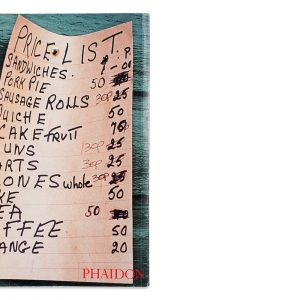 PRICE LIST.
£ P.
SANDWICHES. 1-00
PORK PIE 50
SAUSAGE ROLLS 30p 25
UICHE 50
CAKE FRUIT
UNS 25
ARTS 25
ONES whole 30p 25
KE 50
EA 50
FFEE 50
ANGE 20
PHAIDON